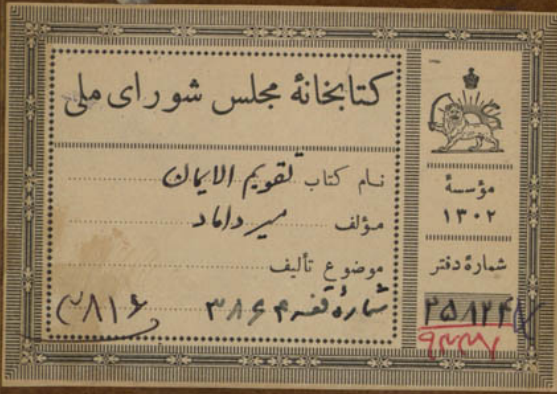 کتابخانهٔ مجلس شورای ملی
نام کتاب تقویم الایمان
مؤلف میرداماد
موضوع تألیف
شمارهٔ قفسه ۳۸۶۴
مؤسسهٔ
۱۳۰۲
شمارهٔ دفتر